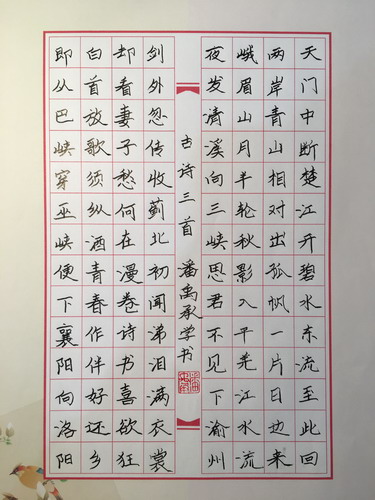 天门中断楚江开碧水东流至此回
两岸青山相对出孤帆一片日边来
峨眉山月半轮秋影入平羌江水流
夜发清溪向三峡思君不见下渝州
古诗三首 潘禹承学书
剑外忽传收蓟北初闻涕泪满衣裳
却看妻子愁何在漫卷诗书喜欲狂
白首放歌须纵酒青春作伴好还乡
即从巴峡穿巫峡便下襄阳向洛阳